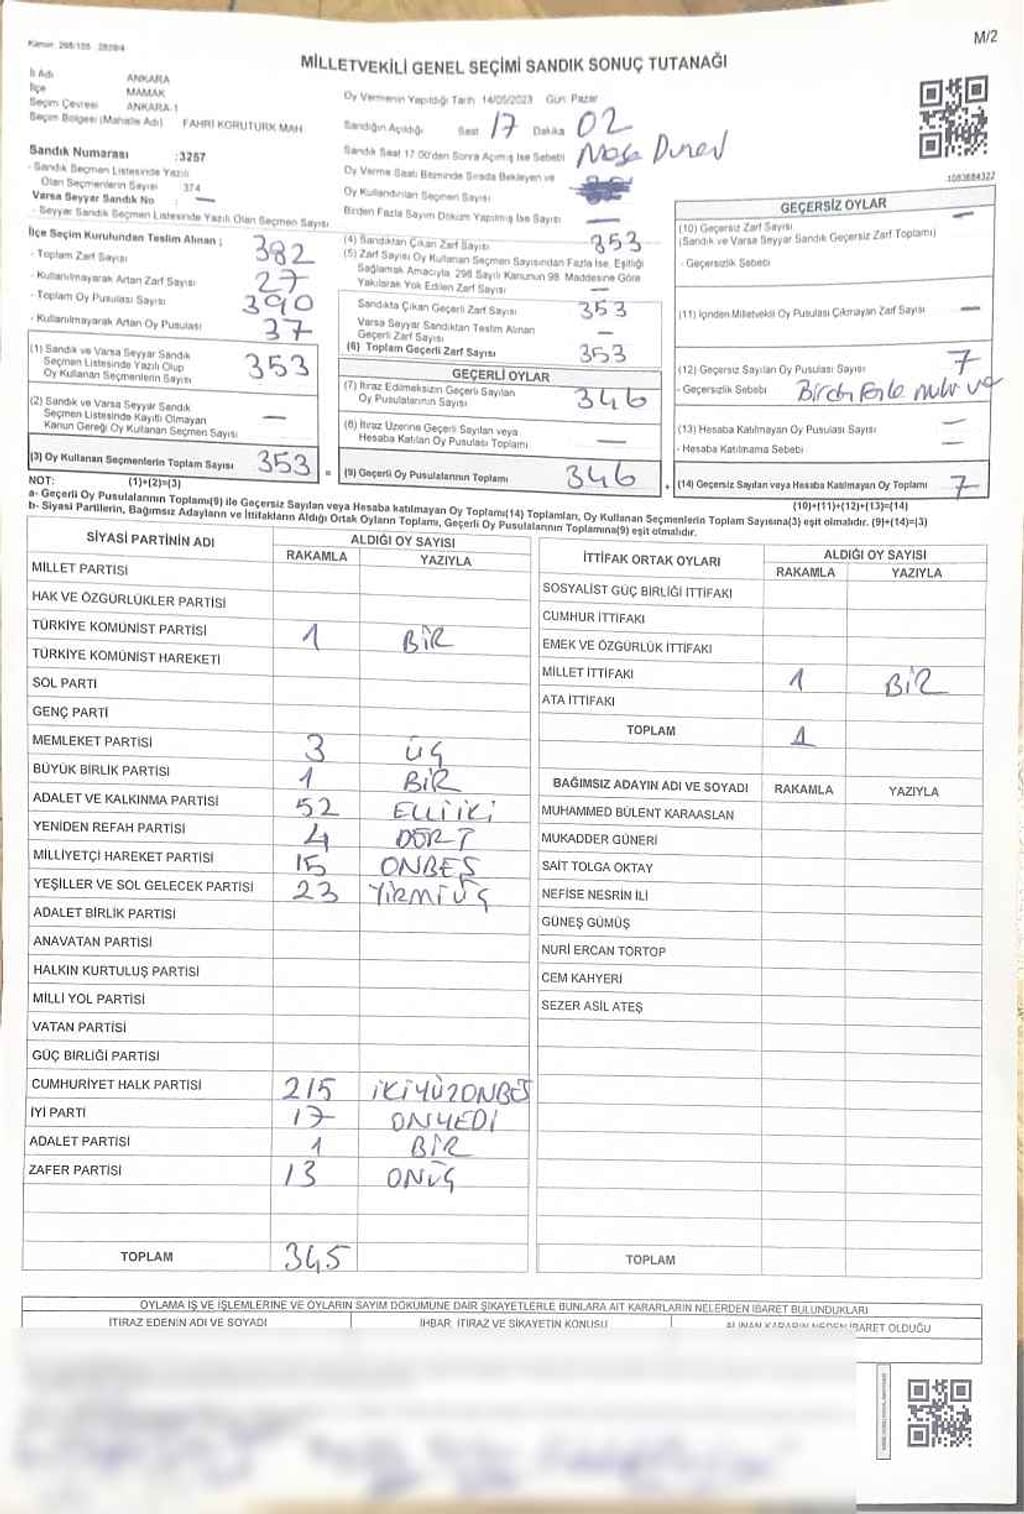 M/2
MİLLETVEKİLİ GENEL SEÇİMİ SANDIK SONUÇ TUTANAĞI
İl Adı ANKARA
İlçe MAMAK
Seçim Çevresi ANKARA-1
Seçim Bölgesi (Mahalle Adı) FAHRİ KORUTÜRK MAH.
Sandık Numarası :3257
- Sandık Seçmen Listesinde Yazılı
Olan Seçmenlerin Sayısı 374
Varsa Seyyar Sandık No : —
- Seyyar Sandık Seçmen Listesinde Yazılı Olan Seçmen Sayısı
İlçe Seçim Kurulundan Teslim Alınan ;
- Toplam Zarf Sayısı 382
- Kullanılmayarak Artan Zarf Sayısı 27
- Toplam Oy Pusulası Sayısı 390
- Kullanılmayarak Artan Oy Pusulası 37
(1) Sandık ve Varsa Seyyar Sandık
Seçmen Listesinde Yazılı Olup
Oy Kullanan Seçmenlerin Sayısı 353
(2) Sandık ve Varsa Seyyar Sandık
Seçmen Listesinde Kayıtlı Olmayan
Kanun Gereği Oy Kullanan Seçmen Sayısı —
(3) Oy Kullanan Seçmenlerin Toplam Sayısı 353
Oy Vermenin Yapıldığı Tarih 14/05/2023 Gün: Pazar
Sandığın Açıldığı Saat 17 Dakika 02
Sandık Saat 17:00'den Sonra Açılmış İse Sebebi
Oy Verme Saati Bitiminde Sırada Bekleyen ve
Oy Kullandırılan Seçmen Sayısı
Birden Fazla Sayım Döküm Yapılmış İse Sayısı —
(4) Sandıktan Çıkan Zarf Sayısı 353
(5) Zarf Sayısı Oy Kullanan Seçmen Sayısından Fazla İse, Eşitliği
Sağlamak Amacıyla 298 Sayılı Kanunun 98. Maddesine Göre
Yakılarak Yok Edilen Zarf Sayısı —
Sandıkta Çıkan Geçerli Zarf Sayısı 353
Varsa Seyyar Sandıktan Teslim Alınan
Geçerli Zarf Sayısı —
(6) Toplam Geçerli Zarf Sayısı 353
GEÇERLİ OYLAR
(7) İtiraz Edilmeksizin Geçerli Sayılan
Oy Pusulalarının Sayısı 346
(8) İtiraz Üzerine Geçerli Sayılan veya
Hesaba Katılan Oy Pusulası Toplamı —
= (9) Geçerli Oy Pusulalarının Toplamı 346
1083684322
GEÇERSİZ OYLAR
(10) Geçersiz Zarf Sayısı —
(Sandık ve Varsa Seyyar Sandık Geçersiz Zarf Toplamı)
- Geçersizlik Sebebi
(11) İçinden Milletvekili Oy Pusulası Çıkmayan Zarf Sayısı —
(12) Geçersiz Sayılan Oy Pusulası Sayısı 7
- Geçersizlik Sebebi
(13) Hesaba Katılmayan Oy Pusulası Sayısı —
- Hesaba Katılmama Sebebi —
+ (14) Geçersiz Sayılan veya Hesaba Katılmayan Oy Toplamı 7
NOT: (1)+(2)=(3) (10)+(11)+(12)+(13)=(14)
a- Geçerli Oy Pusulalarının Toplamı(9) ile Geçersiz Sayılan veya Hesaba katılmayan Oy Toplamı(14) Toplamları, Oy Kullanan Seçmenlerin Toplam Sayısına(3) eşit olmalıdır. (9)+(14)=(3)
b- Siyasi Partilerin, Bağımsız Adayların ve İttifakların Aldığı Ortak Oyların Toplamı, Geçerli Oy Pusulalarının Toplamına(9) eşit olmalıdır.
SİYASİ PARTİNİN ADI ALDIĞI OY SAYISI
RAKAMLA YAZIYLA
MİLLET PARTİSİ
HAK VE ÖZGÜRLÜKLER PARTİSİ
TÜRKİYE KOMÜNİST PARTİSİ 1 BİR
TÜRKİYE KOMÜNİST HAREKETİ
SOL PARTİ
GENÇ PARTİ
MEMLEKET PARTİSİ 3 ÜÇ
BÜYÜK BİRLİK PARTİSİ 1 BİR
ADALET VE KALKINMA PARTİSİ 52 ELLİİKİ
YENİDEN REFAH PARTİSİ 4 DÖRT
MİLLİYETÇİ HAREKET PARTİSİ 15 ONBEŞ
YEŞİLLER VE SOL GELECEK PARTİSİ 23 YİRMİÜÇ
ADALET BİRLİK PARTİSİ
ANAVATAN PARTİSİ
HALKIN KURTULUŞ PARTİSİ
MİLLİ YOL PARTİSİ
VATAN PARTİSİ
GÜÇ BİRLİĞİ PARTİSİ
CUMHURİYET HALK PARTİSİ 215 İKİYÜZONBEŞ
İYİ PARTİ 17 ONYEDİ
ADALET PARTİSİ 1 BİR
ZAFER PARTİSİ 13 ONÜÇ
TOPLAM 345
İTTİFAK ORTAK OYLARI ALDIĞI OY SAYISI
RAKAMLA YAZIYLA
SOSYALİST GÜÇ BİRLİĞİ İTTİFAKI
CUMHUR İTTİFAKI
EMEK VE ÖZGÜRLÜK İTTİFAKI
MİLLET İTTİFAKI 1 BİR
ATA İTTİFAKI
TOPLAM 1
BAĞIMSIZ ADAYIN ADI VE SOYADI RAKAMLA YAZIYLA
MUHAMMED BÜLENT KARAASLAN
MUKADDER GÜNERİ
SAİT TOLGA OKTAY
NEFİSE NESRİN İLİ
GÜNEŞ GÜMÜŞ
NURİ ERCAN TORTOP
CEM KAHYERİ
SEZER ASİL ATEŞ
TOPLAM
OYLAMA İŞ VE İŞLEMLERİNE VE OYLARIN SAYIM DÖKÜMÜNE DAİR ŞİKAYETLERLE BUNLARA AİT KARARLARIN NELERDEN İBARET BULUNDUKLARI
İTİRAZ EDENİN ADI VE SOYADI İHBAR, İTİRAZ VE ŞİKAYETİN KONUSU ALINAN KARARIN NEDEN İBARET OLDUĞU